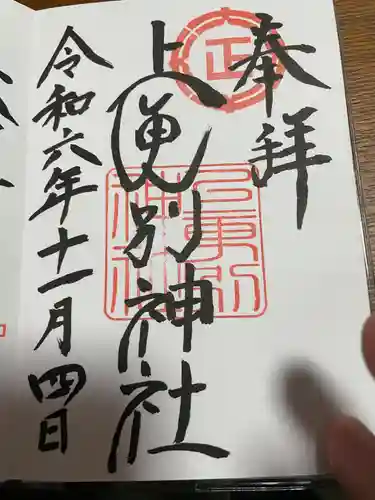 奉拝
上更別神社
令和六年十一月四日